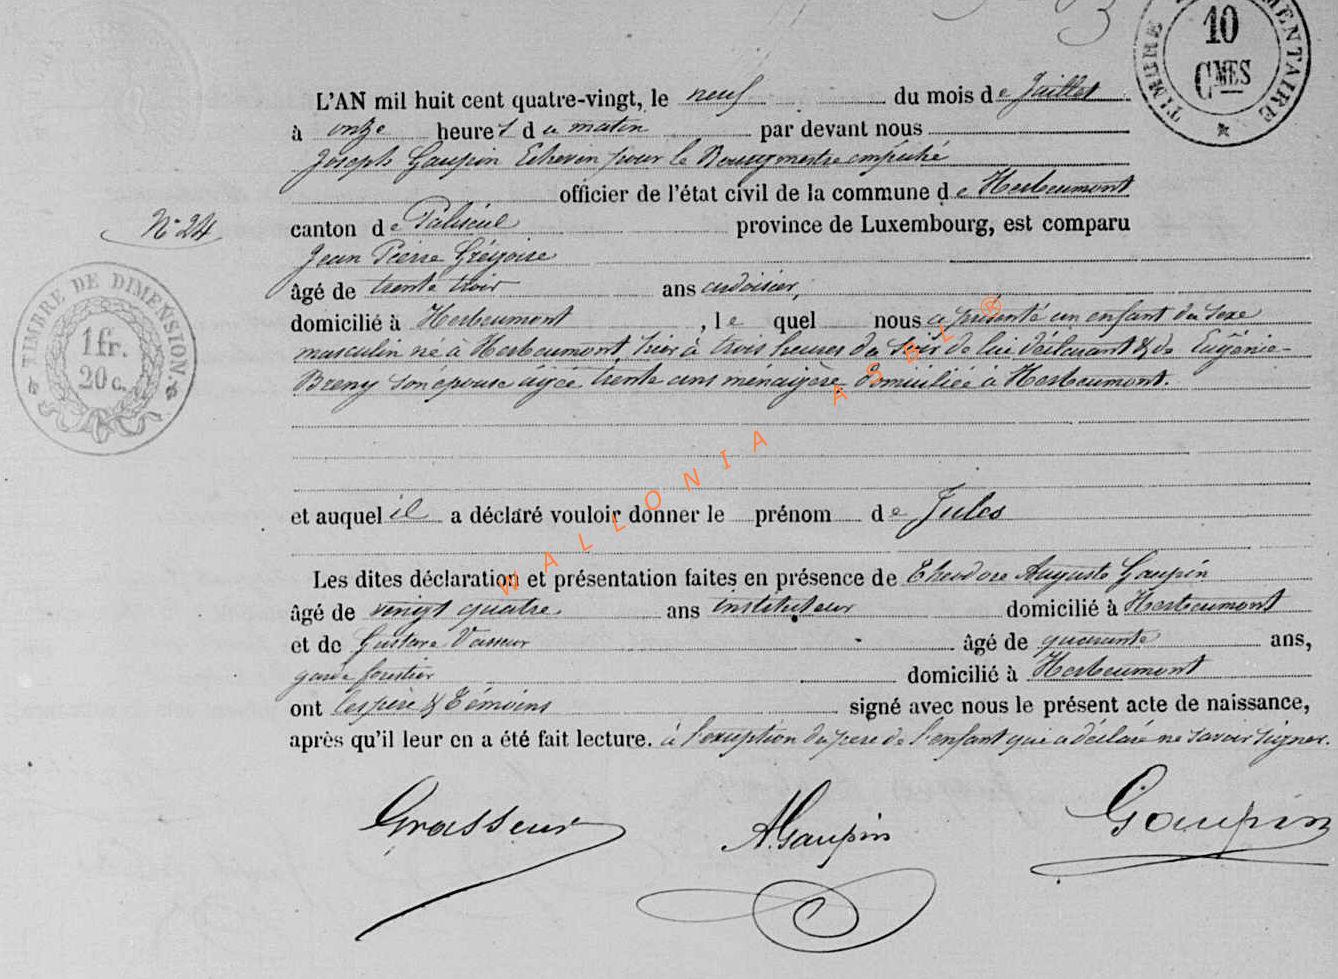 TIMBRE 10 CMES
L'AN mil huit cent quatre-vingt, le neuf du mois de Juillet
à onze heures du matin par devant nous
Joseph Gaupin Echevin pour le Bourgmestre empêché
officier de l'état civil de la commune de Herbeumont
N° 24
canton de Paliseul province de Luxembourg, est comparu
Jean Pierre Grégoire
âgé de trente trois ans ardoisier,
TIMBRE DE DIMENSION 1 fr. 20 c.
domicilié à Herbeumont, lequel nous a présenté un enfant du sexe
masculin né à Herbeumont, hier à trois heures du soir de lui déclarant & de Eugénie
Breny son épouse âgée trente ans ménagère domiciliée à Herbeumont.
et auquel il a déclaré vouloir donner le prénom de Jules
Les dites déclaration et présentation faites en présence de Théodore Auguste Gaupin
âgé de vingt quatre ans instituteur domicilié à Herbeumont
et de Gustave Vasseur âgé de quarante ans,
garde forestier domicilié à Herbeumont
ont les père & témoins signé avec nous le présent acte de naissance,
après qu'il leur en a été fait lecture. à l'exception du père de l'enfant qui a déclaré ne savoir signer.
A. Gaupin Gaupin
WALLONIA ASBL ®